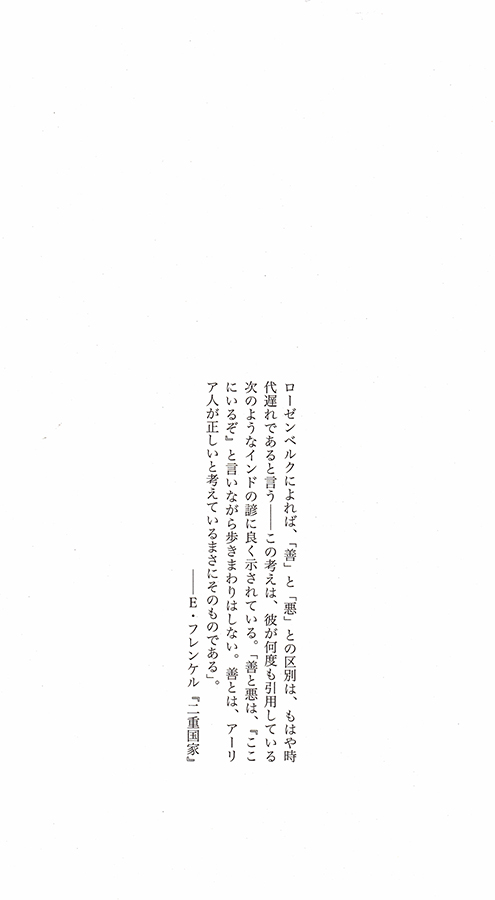 ローゼンベルクによれば、「善」と「悪」との区別は、もはや時
代遅れであると言う——この考えは、彼が何度も引用している
次のようなインドの諺に良く示されている。「善と悪は、『ここ
にいるぞ』と言いながら歩きまわりはしない。善とは、アーリ
ア人が正しいと考えているまさにそのものである」。
——E・フレンケル『二重国家』